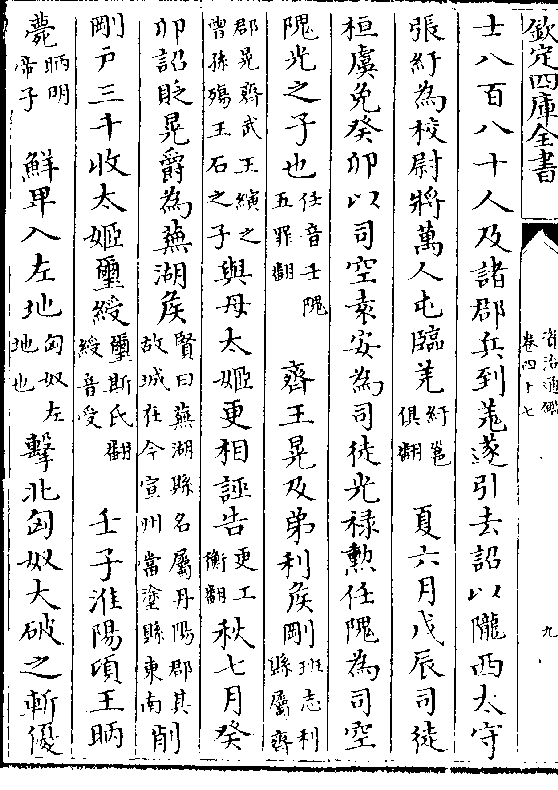 欽定四庫全書
資治通鑑
卷四十七
九
士八百八十人及諸郡兵到羌遂引去詔以隴西太守
張紆為校尉將萬人屯臨羌紆邕俱翻 夏六月戊辰司徒
桓虞免癸卯以司空袁安為司徒光祿勲任隗為司空
隗光之子也任音壬隗五罪翻 齊王晃及弟利侯剛班志利縣屬齊
郡晃齊武王縯之曽孫殤王石之子與母太姬更相誣告更工衡翻秋七月癸
卯詔貶晃爵為蕪湖侯賢曰蕪湖縣名屬丹陽郡其故城在今宣州當塗縣東南削
剛户三千收太姬璽綬璽斯氏翻綬音受 壬子淮陽頃王昞
薨昞明帝子 鮮卑入左地匈奴左地也擊北匈奴大破之斬優